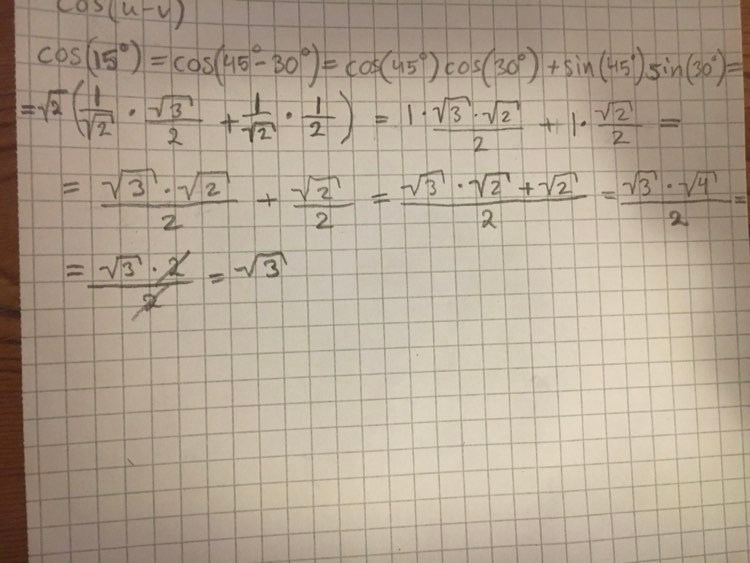 cos(u-v)
cos(15°) = cos(45°-30°) = cos(45°)cos(30°) + sin(45°)sin(30°) =
= √2 (1/√2 · √3/2 + 1/√2 · 1/2) = 1 · √3 · √2/2 + 1 · √2/2 =
= √3 · √2/2 + √2/2 = √3 · √2 + √2/2 = √3 · √4/2 =
= √3 · 2/2 = √3